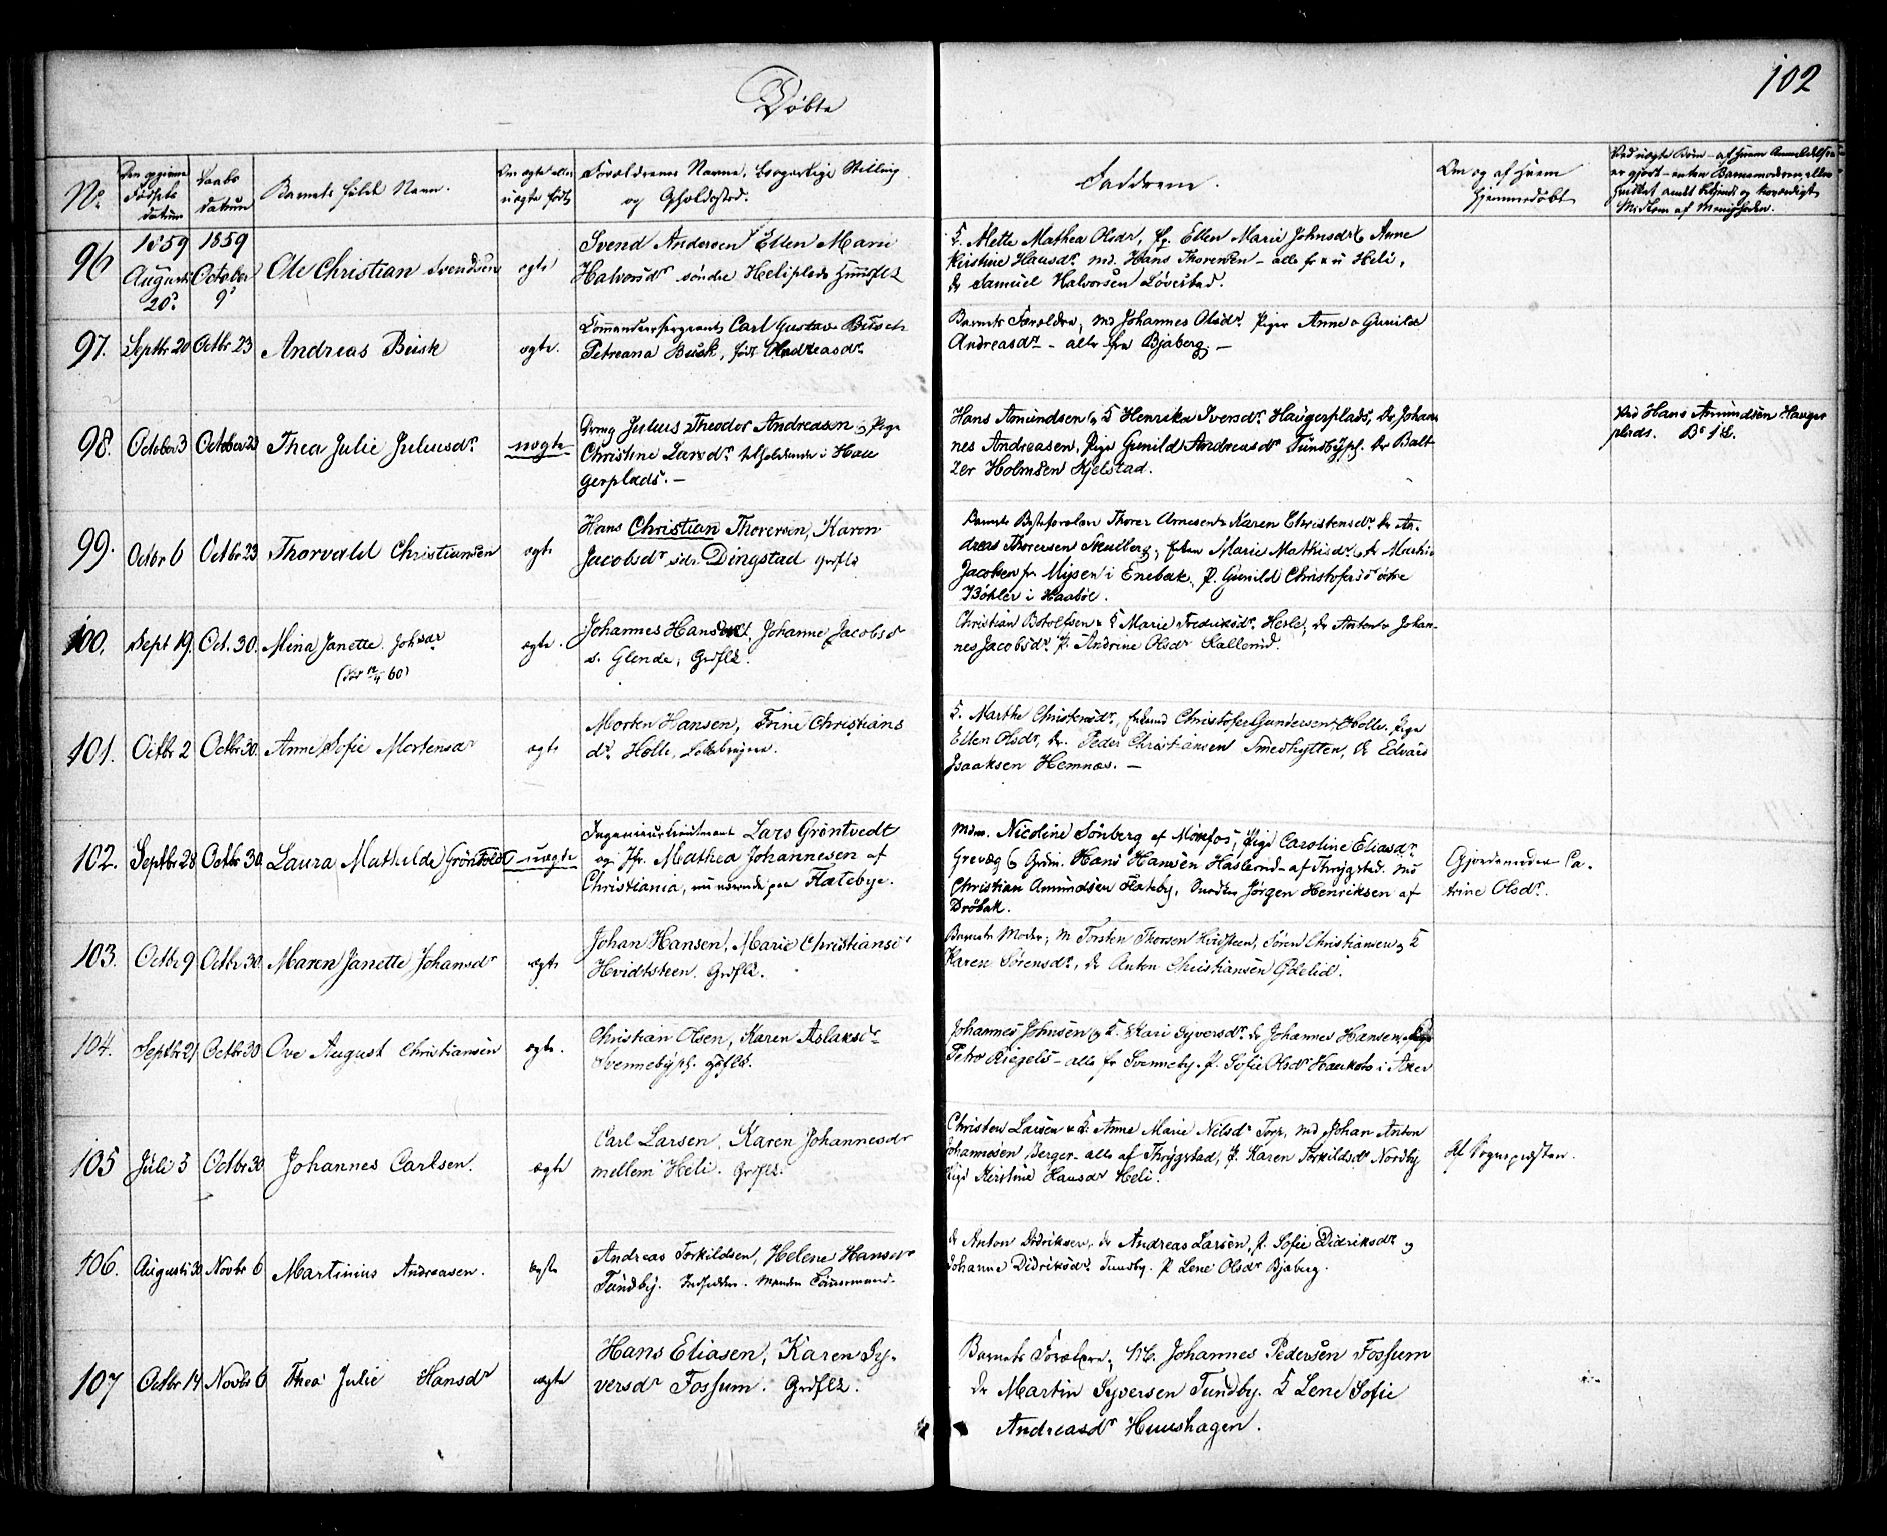 Døbte
102
No
Den opgivne Fødsels datum
Daabs datum
Barnets fulde Navn.
Om ægte eller uægte født
Forældrenes Navne, borgerlige Stilling og Opholdssted.
Fadderne.
Om og af hvem hjemmedøbt
Ved uægte Børn – af hvem Anmeldelsen er gjort – enten Barnemoderen eller hvilket andet bekjendt og troværdigt Medlem af Menigheden.
96 1859 August 20. 1859 October 9 Ole Christian Svendsen ægte
Svend Andersen Ellen Marie
Halvorsdr søndre Heli plads
K. Mette Mathea Olsdr, Pg. Ellen Marie Johnsdr & Anne
Kirstine Hansdr md. Hans Thoresen – alle fra Heli,
Dr Samuel Halvorsen Løvestad.
97. Septbr 20 Octbr 23 Andreas Busk ægte.
Commandeersergeant Carl Gustav Busch
Petreana Busk, født Andreasdr
Barnets Forældre, md Johannes Olsdr. Piger Anne o Gunild
Andreasdr – alle fra Bjaberg. –
98. October 3 October 23 Thea Julie Juliusdr. uægte
Grmg Julius Theodor Andreasen og Pige
Christine Larsdr. tilholdende i Hau
gerplads. –
Hans Amundsen og K Henrika Iversdr. Haugerplads, Dr Johan
nes Andreasen, Pige Gunild Andreasdr Tundbypl. Dr Balt-
zer Holmsen Kjelstad.
Ved Hans Amundsen Hauger
plads.
99. Octbr 6 Octbr 23 Thorvald Christiansen ægte
Hans Christian Thoresen, Karen
Jacobsdr. sdr. Dingstad Grdflk
Barnets Bedsteforældre Thorer Arnesen & Karen Christensdr. Dr An-
dreas Thoresen Skulberg, Marie Mathisdr, Martin
Jacobsen fra Mysen i Enebak, P. Gunild Christofersdr østre
Bøhler i Haabøl.
100. Sept 19. Oct. 30. Mina Janette Johsdr ægte.
(Død 12/4 60)
Johannes Hansen, Johanne Jacobsdr
s. Glende, Grdflk.
Christian Botolfsen & K Marie Fredriksdr. Hesle, Dr Anton & Johan-
nes Jacobsdr. P. Andrine Olsdr Sallerud.
101. Octbr 2 Octbr 30. Anne Sofie Mortensdr ægte
Morten Hansen, Trine Christians
dr. Holle,
K. Marthe Christensdr, Christofer Gundersen Holle. Pige
Ellen Olsdr, Dr. Peder Christiansen Smedhytten, Dr Edvard
Isaaksen Hemnæs. –
102. Septbr 28 Octbr 30. Laura Mathilde Grøntvedt uægte
Ingenieurlieutenant Lars Grøntvedt
og Jfr. Mathea Johannesen af
Christiania, nu værende paa Flatebye.
Mdm. Nicoline Sønberg af Monfos, Pige Caroline Eliasdr.
Grevæg og Grdm. Hans Hansen Haslerud – af Thrygstad. md
Christian Amundsen Flateby, Jørgen Henriksen af
Drøbak.
Gjordemoder Ca-
trine Olsdr.
103. Octbr 9 Octbr 30. Maren Janette Johansdr ægte
Johan Hansen, Marie Christiansdr
Hvidtsteen. Grdflk.
Barnets Moder, m Torsten Thorsen Hvidsteen, Søren Christiansen og K
Karen Sørensdr, Dr Anton Christiansen Ødelid.
104. Septbr 21 Octbr 30 Ove August Christiansen ægte.
Christian Olsen, Karen Aslaksdr
Svennebypl. grdflk.
Johannes Johnsen og K. Kari Syversdr. Dr Johannes Hansen, Pige
Petra Riegels – alle fr Svenneby. P. Sofie Olsdr Hauketo i Aker
105 Juli 3 Octbr 30 Johannes Carlsen. ægte
Carl Larsen, Karen Johannesdr
mellem Heli. Grdflk.
Christen Larsen & K. Anne Marie Nilsdr Torp, md Johan Anton
Johannesen Berger – alle af Thrygstad, P. Karen Torkildsdr Nordby
Pige Kirstine Hansdr Heli.
Af Sognepræsten.
106. August 30 Novbr 6 Martinius Andreasen. ægte
Andreas Torkildsen, Helene Hansdr
Tundby. Inderster. Manden Tømmermand.
Dr Anton Didriksen, Dr Andreas Larsen, P. Sofie Didriksdr og
Johanne Didriksdr. Tundby. P Lene Olsdr Bjaberg.
107 Octbr 14 Novbr 6 Thea Julie Hansdr ægte
Hans Eliasen, Karen Sy-
versdr Fossum. Grdflk.
Barnets Forældre, Md. Johannes Pedersen Fossum
Dr Martin Syversen Tundby. K Lene Sofie
Andreasdr Huushagen.